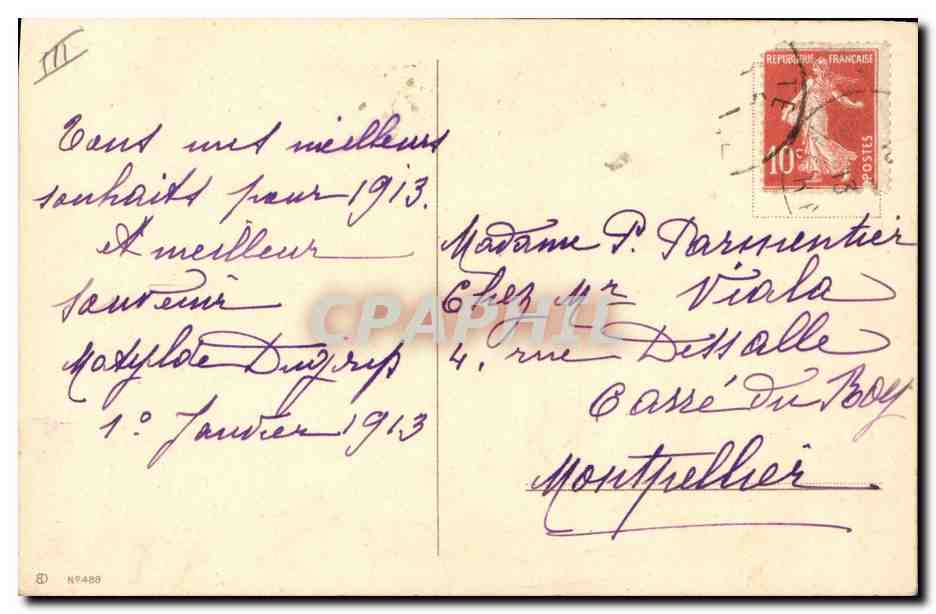 III
Tous mes meilleurs
souhaits pour 1913.
A meilleur
souvenir
Matylde Dugrip
1º Janvier 1913
RÉPUBLIQUE FRANÇAISE
10c
POSTES
13
Madame P. Parmentier
Chez Mr Viala
4, rue Dessalle
Carré du Roy
Montpellier
CPAPHIL
Nº 488